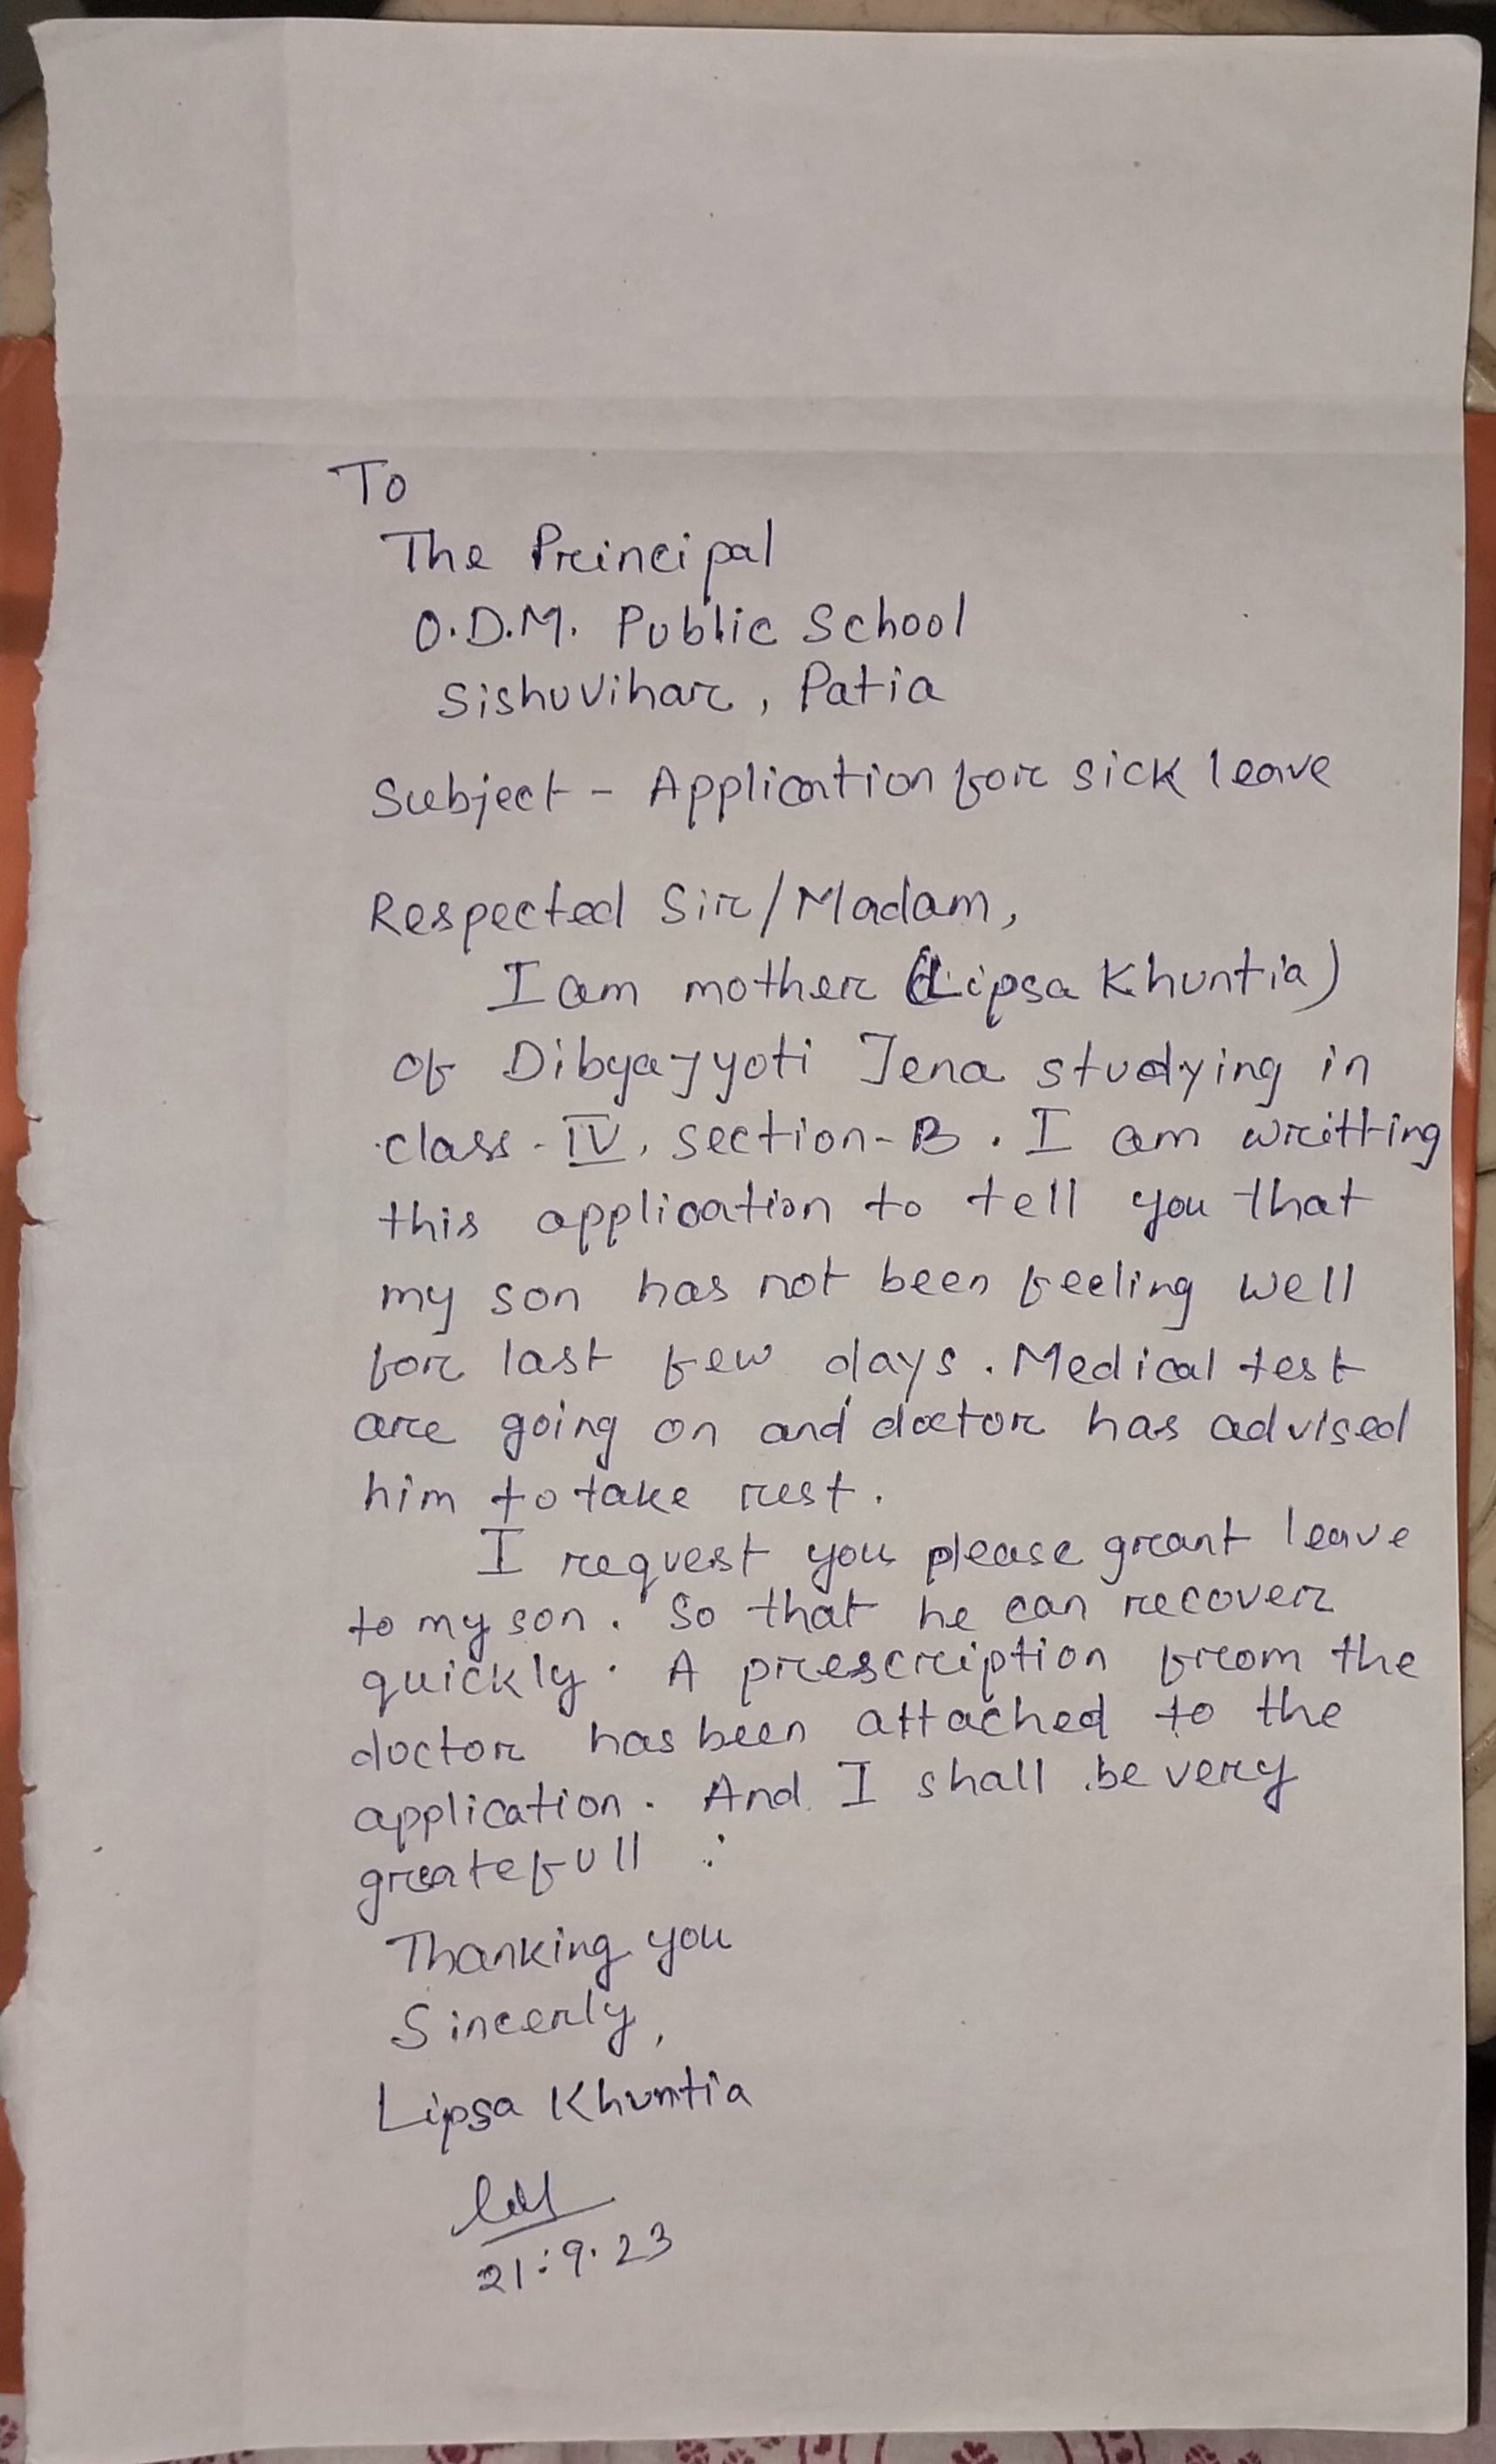 To
The Principal
O.D.M. Public School
Sishuvihar, Patia
Subject - Application for sick leave
Respected Sir/Madam,
I am mother (Lipsa Khuntia)
of Dibyajyoti Jena studying in
class - IV, section - B. I am writting
this application to tell you that
my son has not been feeling well
for last few days. Medical test
are going on and doctor has advised
him to take rest.
I request you please grant leave
to my son. So that he can recover
quickly. A prescription from the
doctor has been attached to the
application. And I shall be very
greatefull.
Thanking you
Sincerly,
Lipsa Khuntia
21.9.23